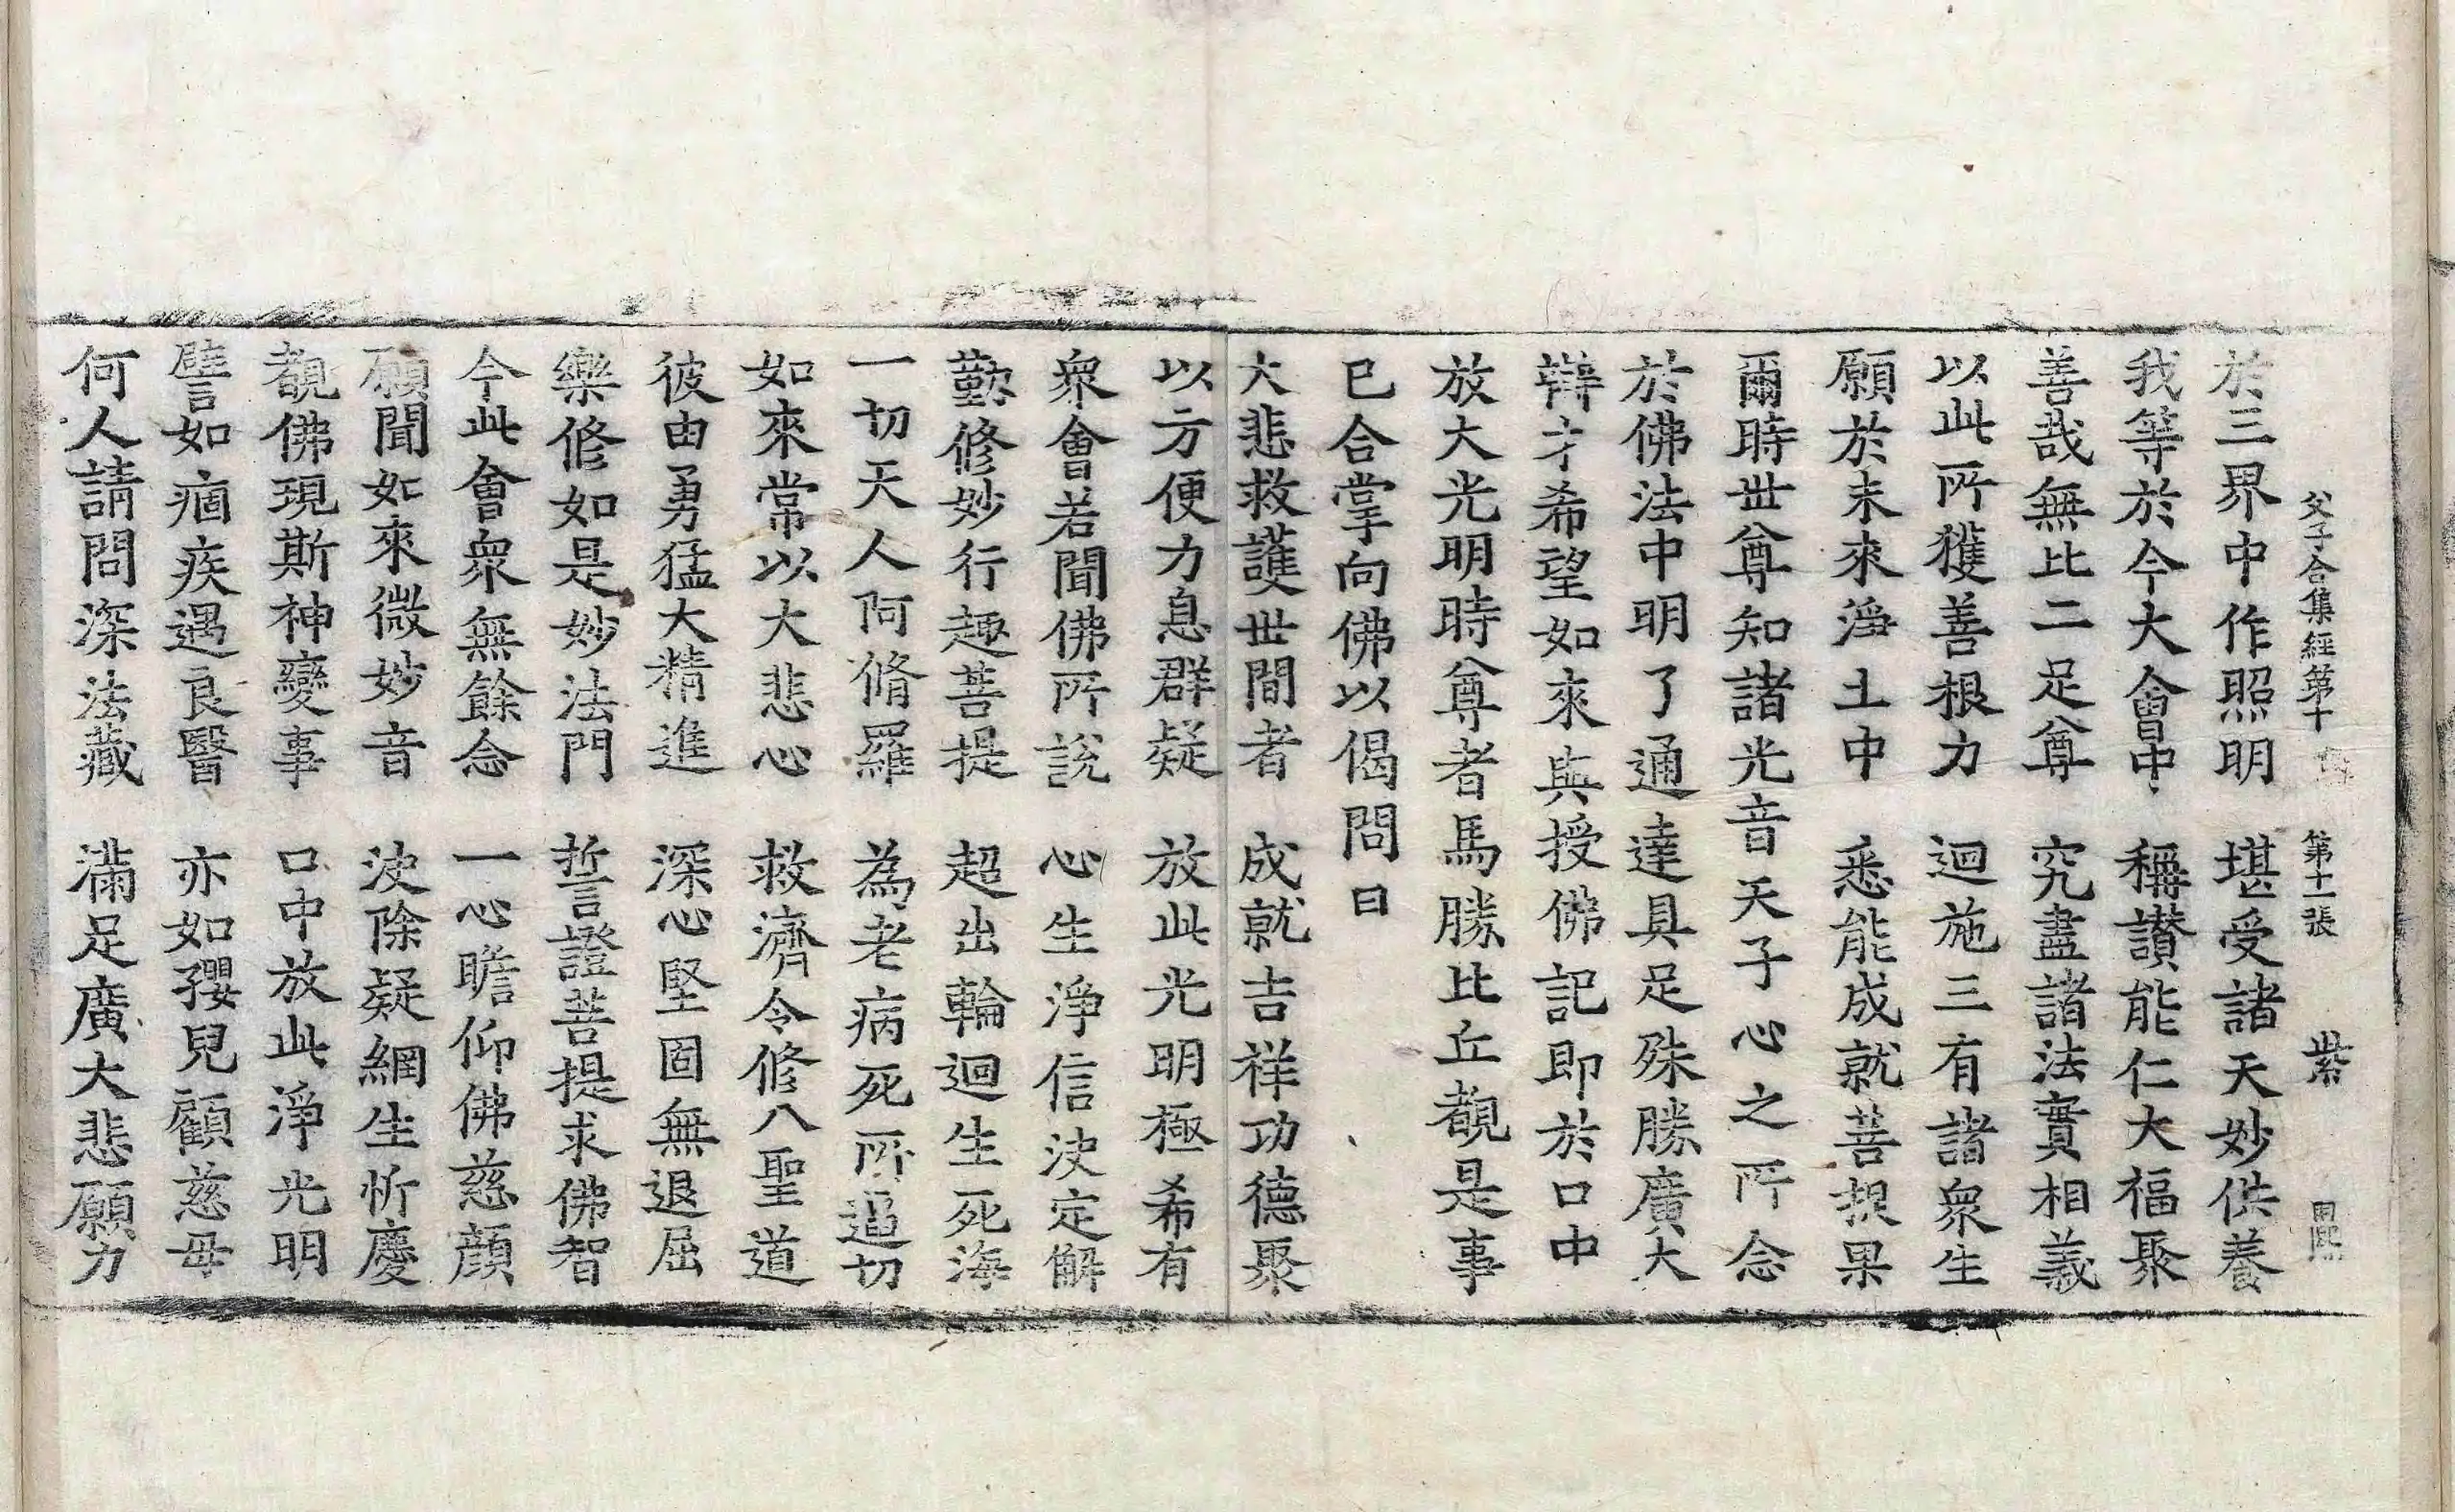 父子合集經第十 第十一張 紫
於三界中作照明 堪受諸天妙供養
我等於今大會中 稱讃能仁大福聚
善哉無比二足尊 究盡諸法實相義
以此所獲善根力 迴施三有諸衆生
願於未來淨土中 悉能成就菩提果
爾時世尊知諸光音天子心之所念
於佛法中明了通達具足殊勝廣大
辯才希望如來與授佛記即於口中
放大光明時尊者馬勝比丘覩是事
已合掌向佛以偈問曰
大悲救護世間者 成就吉祥功德聚
以方便力息群疑 放此光明極希有
衆會若聞佛所說 心生淨信決定解
勤修妙行趣菩提 超出輪迴生死海
一切天人阿脩羅 為老病死所逼切
如來常以大悲心 救濟令修八聖道
彼由勇猛大精進 深心堅固無退屈
樂修如是妙法門 誓證菩提求佛智
今此會衆無餘念 一心瞻仰佛慈顔
願聞如來微妙音 決除疑網生忻慶
覩佛現斯神變事 口中放此淨光明
譬如痼疾遇良醫 亦如孾兒顧慈母
何人請問深法藏 滿足廣大悲願力